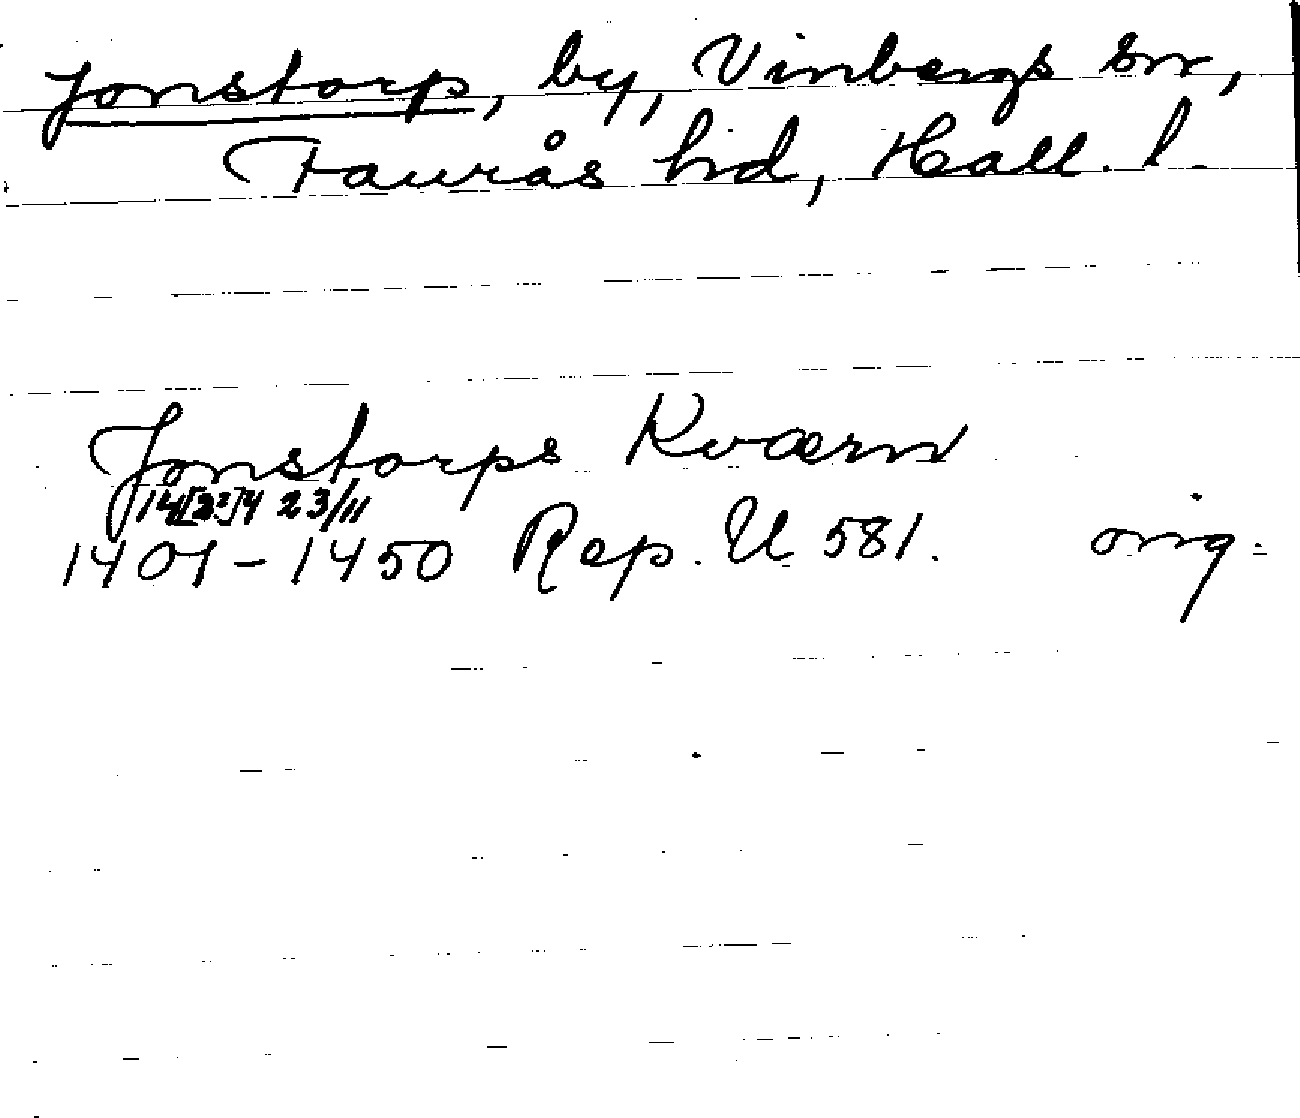 Jonstorp, by, Vinbergs sn,
Faurås hd, Hall. l.
Jonstorps Kværn
14[2?]4 23/11
1401-1450 Rep. U 581. orig.